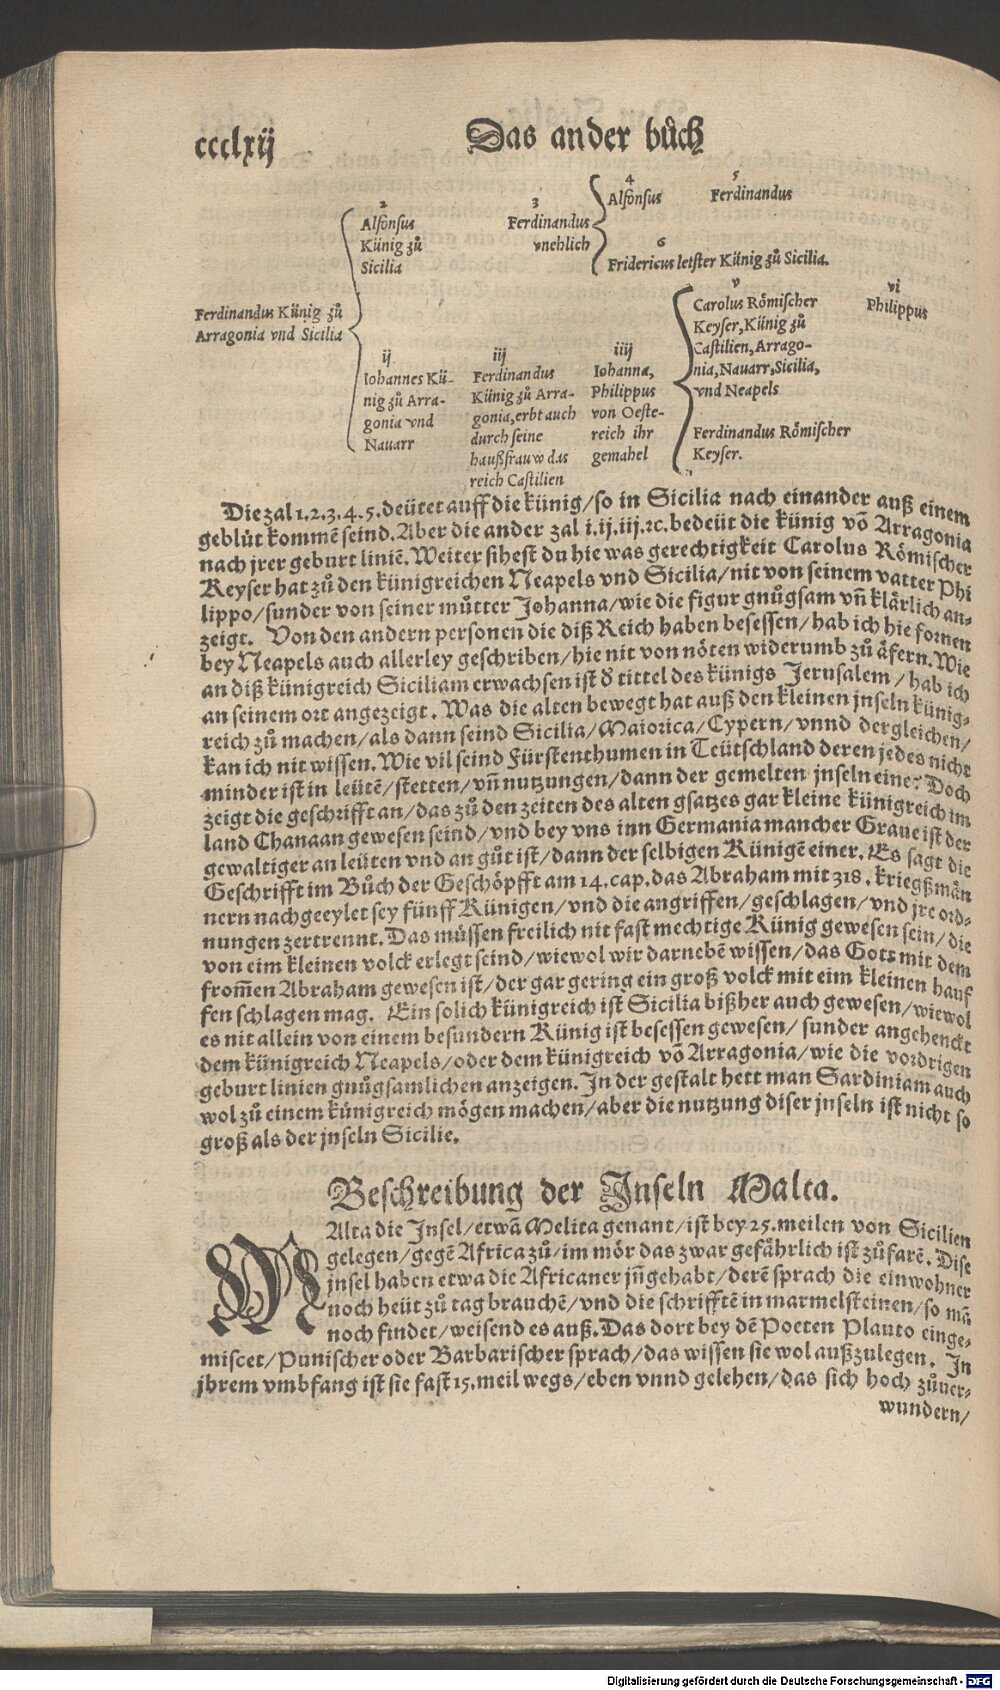 ccclxij
Das ander bůch
2
Alfonsus
Künig zů
Sicilia
3
Ferdinandus
vnehlich
4
Alfonsus
5
Ferdinandus
6
Fridericus letster Künig zů Sicilia.
Ferdinandus Künig zů
Arragonia vnd Sicilia
ij
Iohannes Kü-
nig zů Arra-
gonia vnd
Nauarr
iij
Ferdinandus
Künig zů Arra-
gonia, erbt auch
durch seine
haußfrauw das
reich Castilien
iiij
Iohanna,
Philippus
von Oeste-
reich ihr
gemahel
v
Carolus Römischer
Keyser, Künig zů
Castilien, Arrago-
nia, Nauarr, Sicilia,
vnd Neapels
Ferdinandus Römischer
Keyser.
vi
Philippus
Die zal 1.2.3.4.5. deütet auff die künig/so in Sicilia nach einander auß einem
geblůt kommē seind. Aber die ander zal i.ij.iij.ꝛc. bedeüt die künig vō Arragonia
nach jrer geburt liniē. Weiter sihest du hie was gerechtigkeit Carolus Römischer
Keyser hat zů den künigreichen Neapels vnd Sicilia/nit von seinem vatter Phi
lippo/sunder von seiner můtter Johanna/wie die figur gnůgsam vñ klärlich an-
zeigt. Von den andern personen die diß Reich haben besessen/hab ich hie fornen
bey Neapels auch allerley geschriben/hie nit von nöten widerumb zů äfern. Wie
an diß künigreich Siciliam erwachsen ist ď tittel des künigs Jerusalem/hab ich
an seinem ort angezeigt. Was die alten bewegt hat auß den kleinen jnseln künig-
reich zů machen/als dann seind Sicilia/Maiorica/Cypern/vnnd dergleichen/
kan ich nit wissen. Wie vil seind Fürstenthumen in Teütschland deren jedes nicht
minder ist in leütē/stetten/vñ nutzungen/dann der gemelten jnseln eine? Doch
zeigt die geschrifft an/das zů den zeiten des alten gsatzes gar kleine künigreich im
land Chanaan gewesen seind/vnd bey vns inn Germania mancher Graue ist der
gewaltiger an leüten vnd an gůt ist/dann der selbigen Künigē einer. Es sagt die
Geschrifft im Bůch der Geschöpfft am 14. cap. das Abraham mit 318. kriegßmän
nern nachgeeylet sey fünff Künigen/vnd die angriffen/geschlagen/vnd jre ord-
nungen zertrennt. Das müssen freilich nit fast mechtige Künig gewesen sein/die
von eim kleinen volck erlegt seind/wiewol wir darnebē wissen/das Gott mit dem
frommen Abraham gewesen ist/der gar gering ein groß volck mit eim kleinen hauf
fen schlagen mag. Ein solich künigreich ist Sicilia bißher auch gewesen/wiewol
es nit allein von einem besundern Künig ist besessen gewesen/sunder angehenckt
dem künigreich Neapels/oder dem künigreich vō Arragonia/wie die vordrigen
geburt linien gnůgsamlichen anzeigen. In der gestalt hett man Sardiniam auch
wol zů einem künigreich mögen machen/aber die nutzung diser jnseln ist nicht so
groß als der jnseln Sicilie.
Beschreibung der Jnseln Malta.
MAlta die Jnsel/etwā Melita genant/ist bey 25. meilen von Sicilien
gelegen/gegē Africa zů/im mör das zwar gefährlich ist zů farē. Dise
jnsel haben etwa die Africaner jñgehabt/derē sprach die einwohner
noch heüt zů tag brauchē/vnd die schrifftē in marmelsteinen/so mā
noch findet/weisend es auß. Das dort bey dē Poeten Plauto einge-
miscet/Punischer oder Barbarischer sprach/das wissen sie wol außzulegen. In
jhrem vmbfang ist sie fast 15. meil wegs/eben vnnd gelehen/das sich hoch zůuer-
wundern/
Digitalisierung gefördert durch die Deutsche Forschungsgemeinschaft - DFG